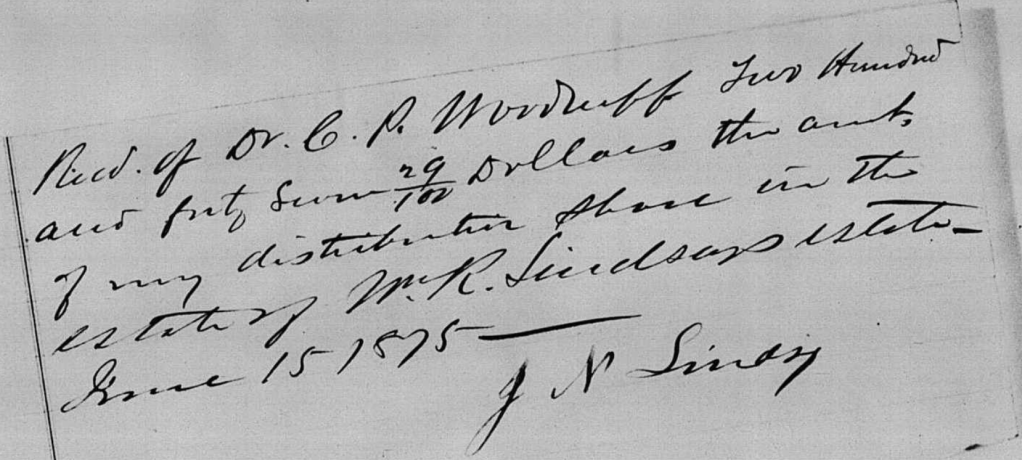 Recd. of Dr. C. P. Woodruff Two Hundred
and forty Seven 29/100 Dollars the amt.
of my distributive Share in the
estate of Wm. R. Lindsays estate-
June 15 1875
J N Lindsy